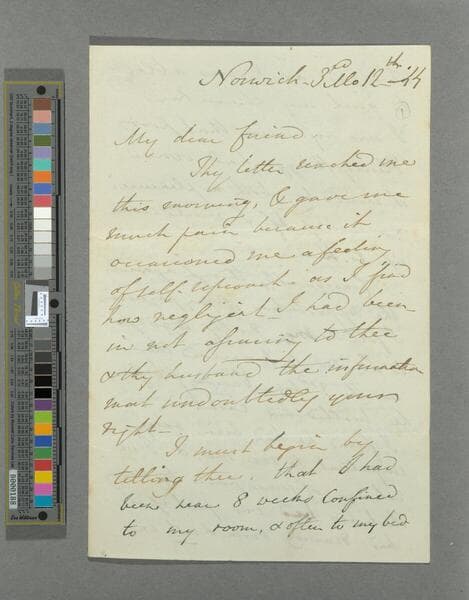 Norwich - 3rd Mo 12th - 44
1
My dear friend
Thy letter reached me
this morning, & gave me
much pain because it
occasioned me a feeling
of self reproach. as I find
how negligent I had been
in not assuring to thee
& thy husband the information
most undoubtedly yours
right -
I must begin by
telling thee, that I had
been near 8 weeks Confined
to my room, & often to my bed